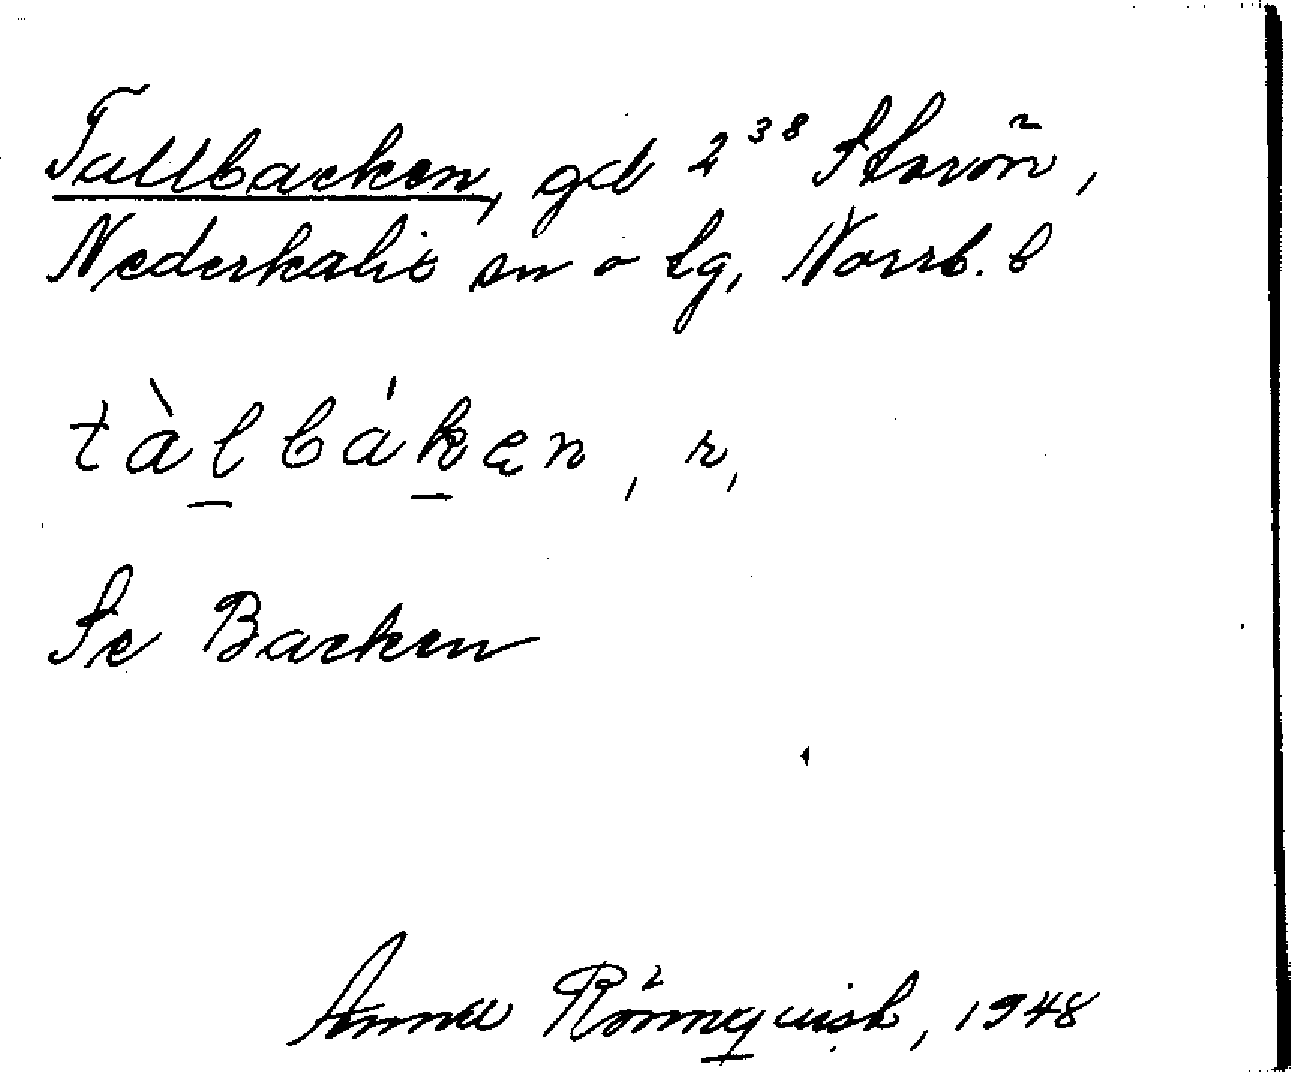 Tallbacken, gd 2³⁸ Storön,
Nederkalix sn o tg, Norrb. l
tàlbákęn, r,
Se Backen
Anna Rönnquist, 1948